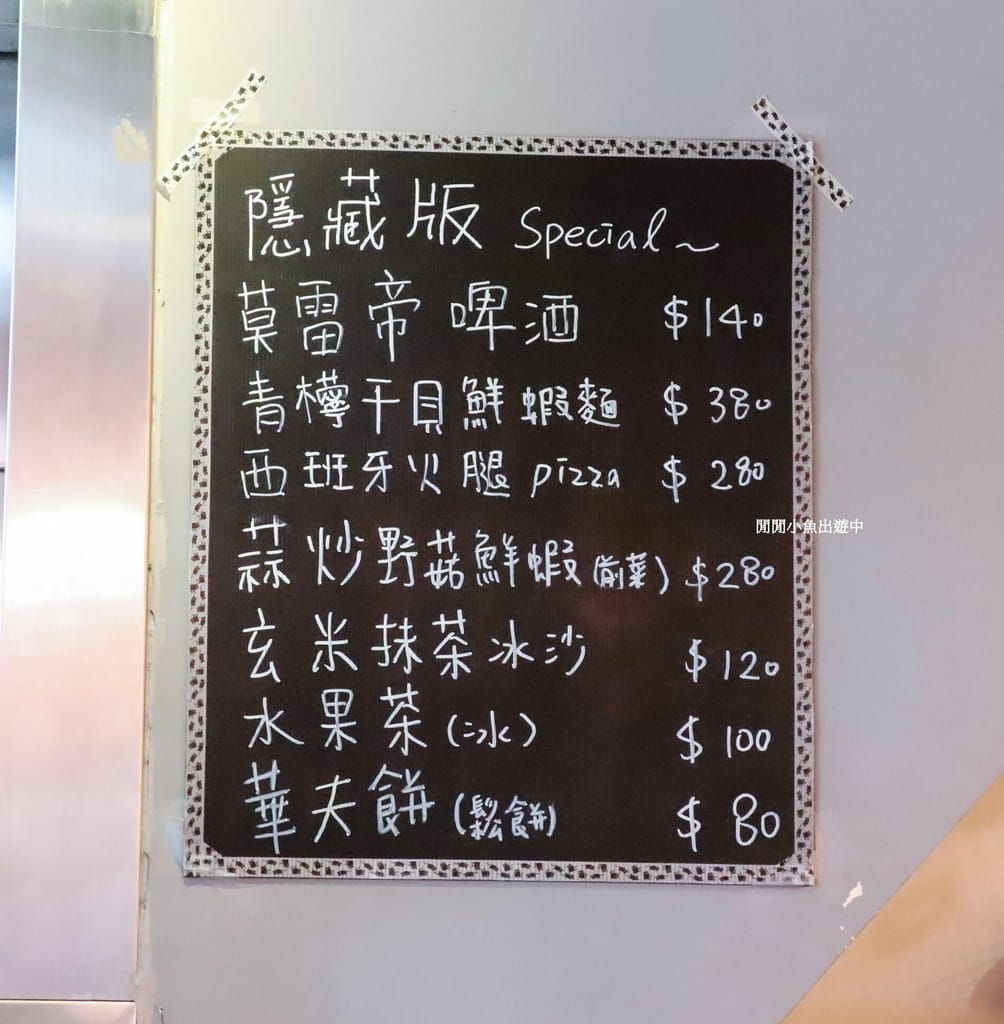 隱藏版 Special～
莫雷帝啤酒 $140
青檸干貝鮮蝦麵 $380
西班牙火腿 pizza $280
蒜炒野菇鮮蝦(前菜) $280
玄米抹茶冰沙 $120
水果茶(冰) $100
華夫餅(鬆餅) $80
閒閒小魚出遊中